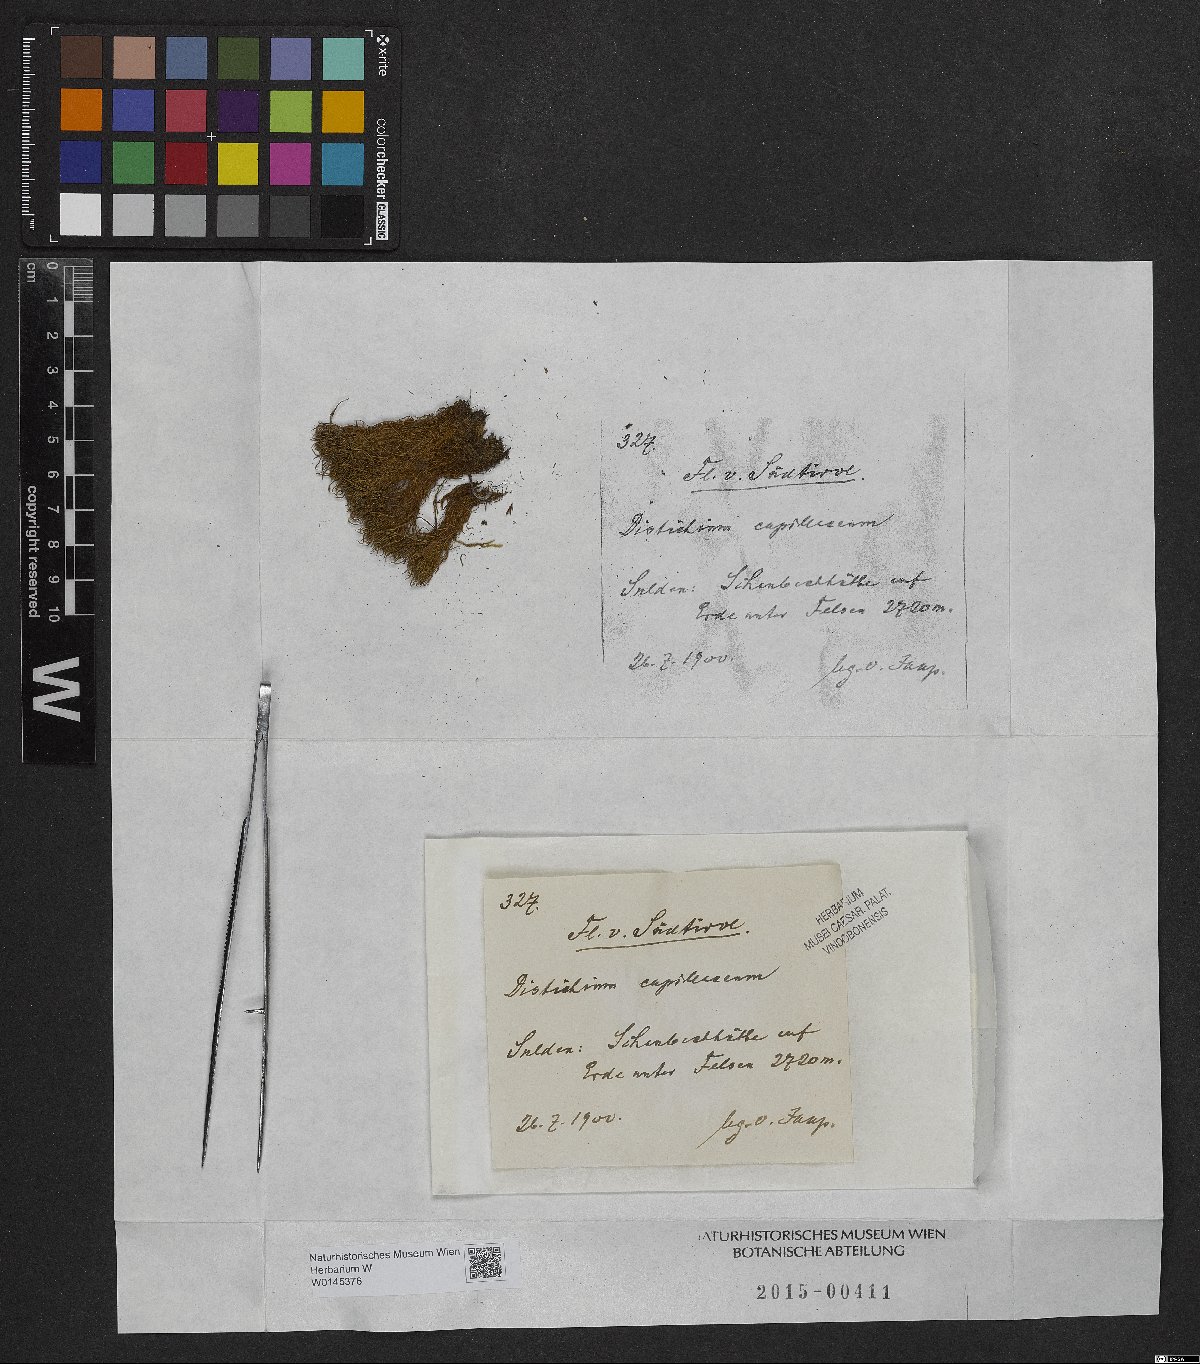 x-rite
colorchecker CLASSIC
0 1 2 3 4 5 6 7 8 9 10
cm
copyright reserved
W
327.
Fl. v. Südtirol.
Distichium capillaceum
Sulden: Schaubachhütte auf
Erde unter Felsen 2720 m.
26. 7. 1900.
leg. O. Jaap.
327.
Fl. v. Südtirol.
Distichium capillaceum
Sulden: Schaubachhütte auf
Erde unter Felsen 2720 m.
26. 7. 1900.
leg. O. Jaap.
HERBARIUM
MUSEI CAESAR. PALAT.
VINDOBONENSIS
Naturhistorisches Museum Wien
Herbarium W
W0145376
NATURHISTORISCHES MUSEUM WIEN
BOTANISCHE ABTEILUNG
2015-00411